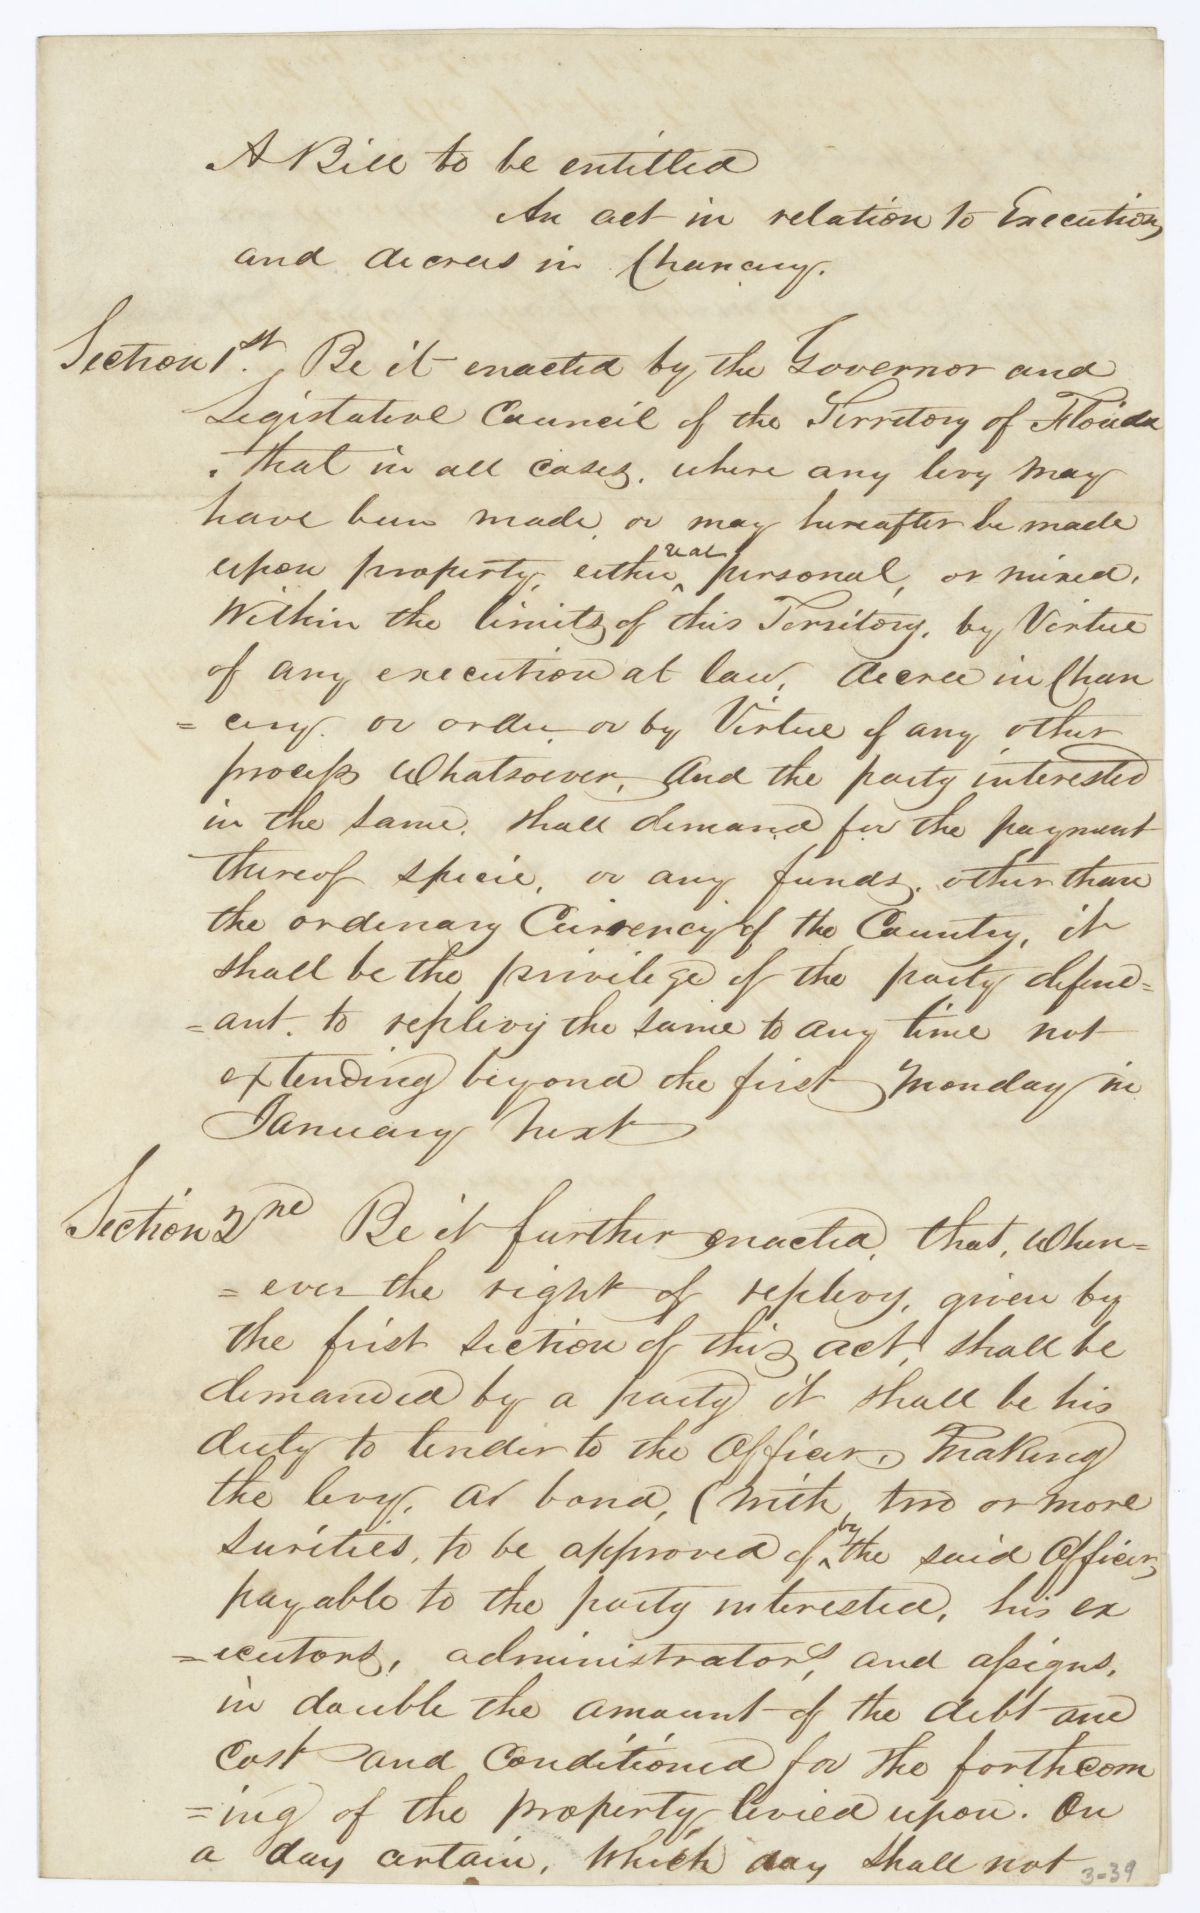 A Bill to be entitled
An act in relation to Executions
and decrees in Chancery.
Section 1st. Be it enacted by the Governor and
Legislative Council of the Territory of Florida
that in all cases, where any levy may
have been made, or may hereafter be made
upon property, either real, personal, or mixed,
Within the limits of this Territory, by Virtue
of any execution at law, decree in Chan
=cery. or order, or by Virtue of any other
process Whatsoever, And the party interested
in the same, shall demand for the payment
thereof specie, or any funds, other than
the ordinary Currency of the Country, it
shall be the privilege of the party defend=
=ant. to replevy the same to any time not
extending beyond the first Monday in
January Next
Section 2nd Be it further enacted, that, When=
=ever the right of replevy, given by
the first Section of this act, shall be
demanded by a party it shall be his
duty to tender to the Officer, Making
the levy, a bond, (with two or more
surities, to be approved of by the said Officer,
payable to the party interested, his ex
=ecutors, administrators, and assigns,
in double the amount of the debt and
Cost and Conditioned for the forthcom
=ing of the property levied upon. On
a day certain, Which day shall not
3-39